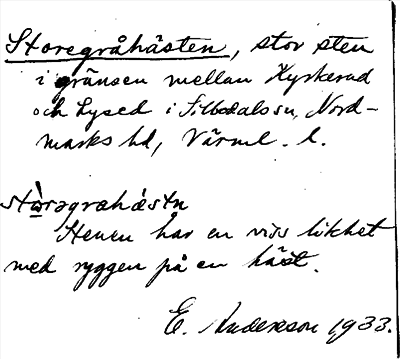 Storegråhästen, stor sten
i gränsen mellan Kyrkerud
och Lysed i Silbodals sn, Nord-
marks hd, Värml. l.
Stenen har en viss likhet
med ryggen på en häst.
E. Anderson 1933.